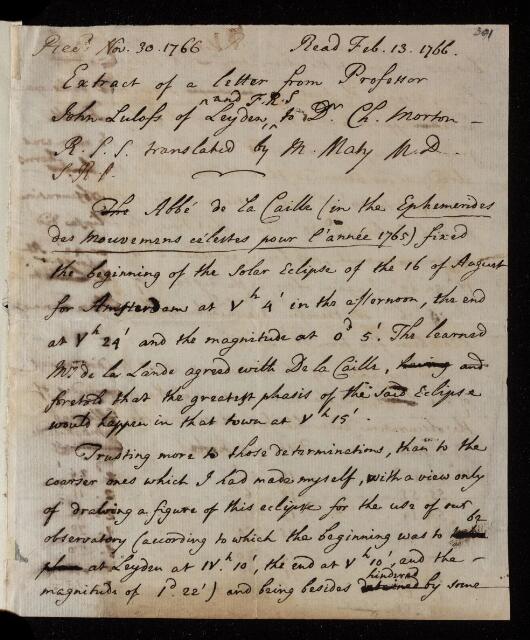 301
Rec.d Nov. 30. 1766 Read Feb. 13. 1766.
Extract of a letter from Professor
John Lulofs of Leyden, and F.R.S to Dr. Ch. Morton
R. S. S. translated by M. Maty M.D.
S. R. S.
The Abbé de la Caille (in the Ephemerides
des Mouvemens célestes pour l'année 1765) fixed
the beginning of the Solar Eclipse of the 16 of August
for Amsterdam at V h 4' in the afternoon, the end
at V h 24' and the magnitude at 0 d 5'. The learned
Mr. de la Lande agreed with De la Caille, having and
foretold that the greatest phasis of the said Eclipse
would happen in that town at V h 15'.
Trusting more to those determinations, than to the
coarser ones which I had made myself, with a view only
of drawing a figure of this eclipse for the use of our
observatory (according to which the beginning was to be
at Leyden at IV. h 10', the end at V h 10', and the
magnitude of 1 d 22') and being besides detained hindered by some